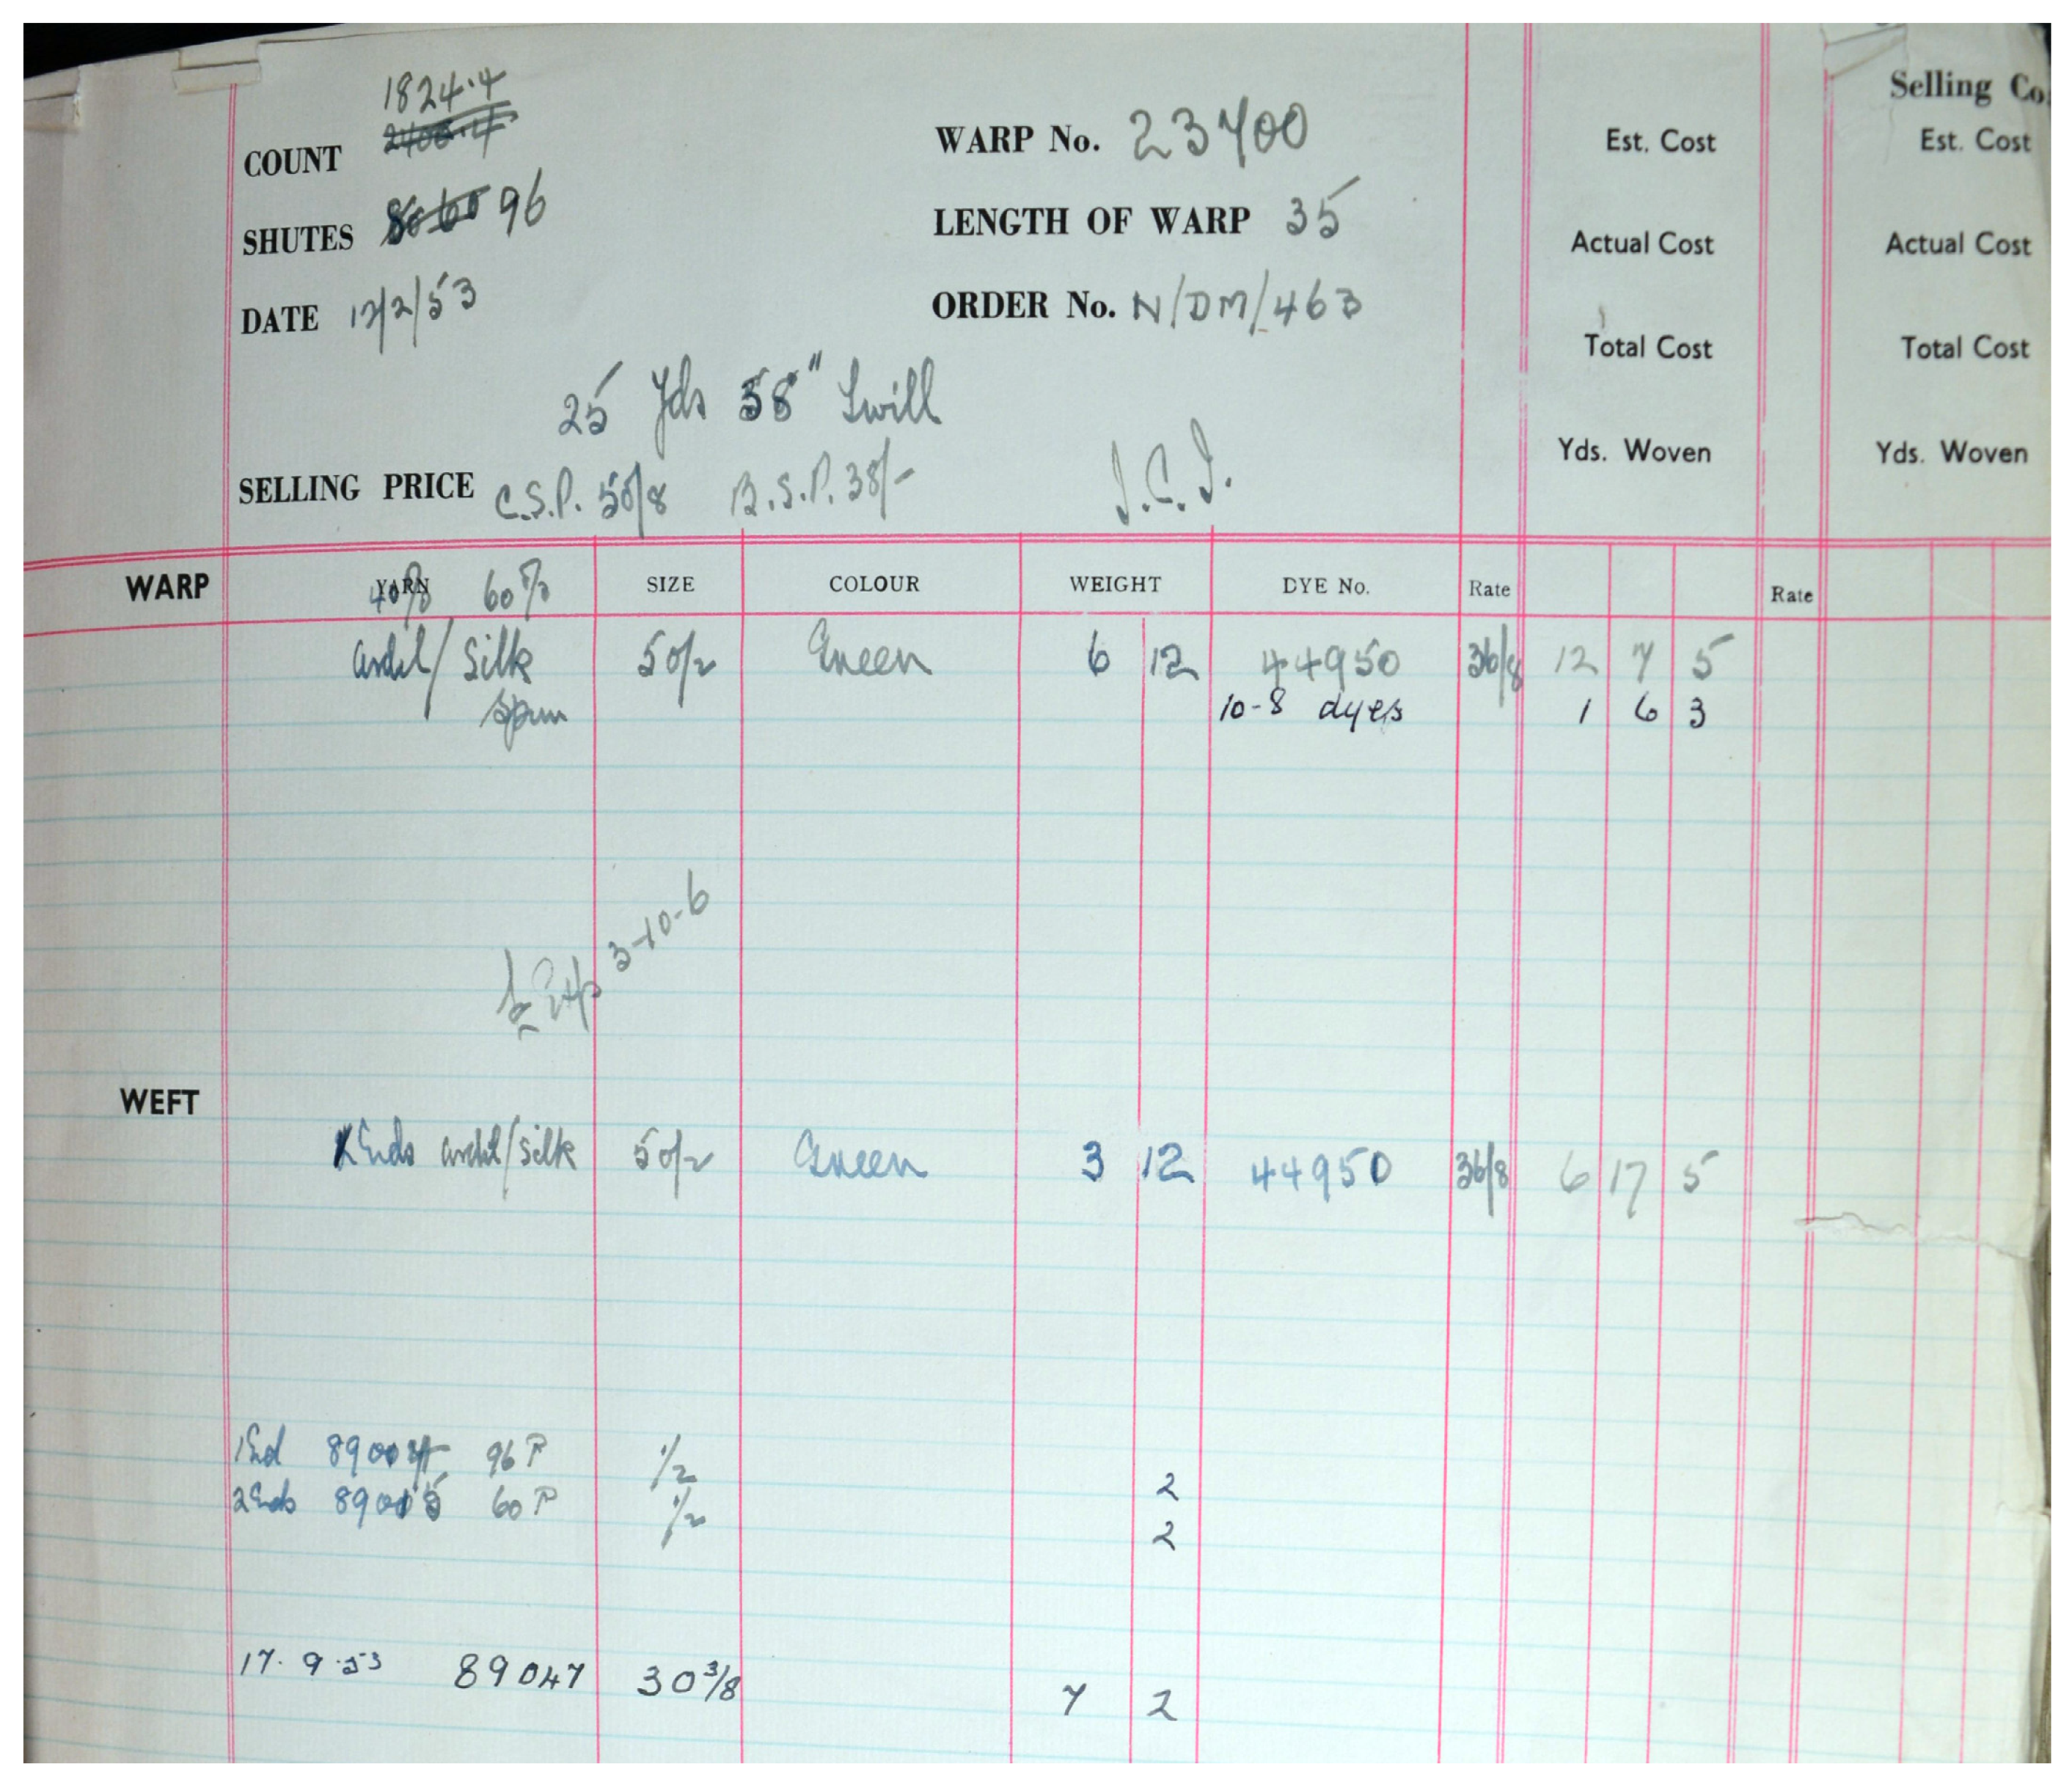 Selling Co
1824.4
2400.4
COUNT
WARP No. 23700
Est. Cost
Est. Cost
SHUTES 96
LENGTH OF WARP 35
Actual Cost
Actual Cost
DATE 12/2/53
ORDER No. N/DM/463
Total Cost
Total Cost
25 Yds 58" Twill
Yds. Woven
Yds. Woven
SELLING PRICE C.S.P. 50/8 B.S.P. 38/- I.C.I.
WARP YARN 40% 60% SIZE COLOUR WEIGHT DYE No. Rate Rate
ardil/Silk 50/2 Green 6 12 44950 36/8 12 7 5
Spun 10-8 dyes 1 6 3
3-10-6
WEFT
Ends ardil/silk 50/2 Green 3 12 44950 36/8 6 17 5
1 End 96 P 1/2 2
2 Ends 60 P 1/2 2
17.9.53 89047 30 3/8 7 2